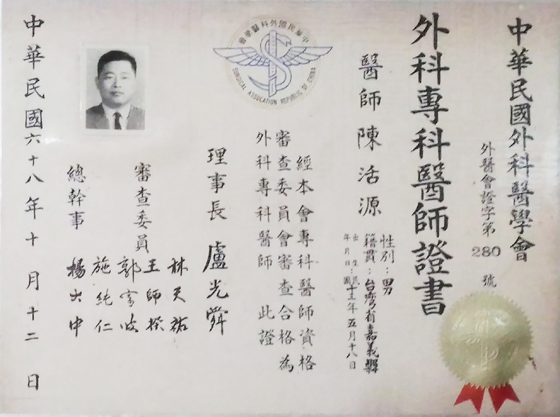 中華民國外科醫學會
外醫會證字第280號
外科專科醫師證書
醫師 陳活源
性別：男
籍貫：台灣省嘉義縣
出生年月日：民國十三年五月十八日
中華民國外科醫學會
SURGICAL ASSOCIATION REPUBLIC OF CHINA
經本會專科醫師資格
審查委員會審查合格為
外科專科醫師 此證
理事長 盧光舜
審查委員
林天祐
王師揆
郭宗波
施純仁
總幹事 楊大中
中華民國六十八年十月十二日